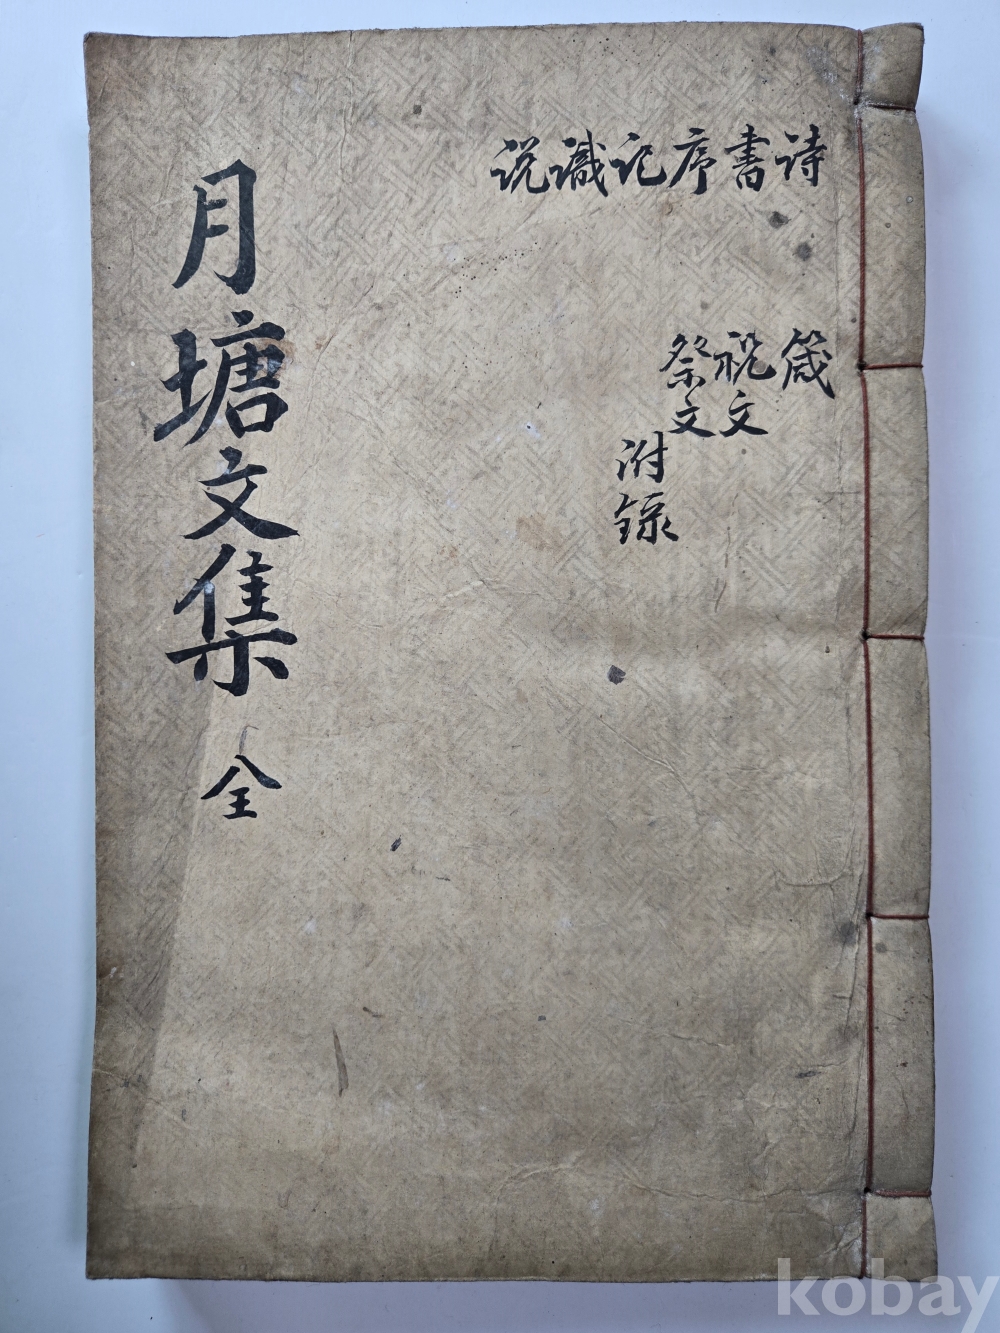 詩書序記識說
箴
祝文
祭文
附錄
月塘文集 全
kobay